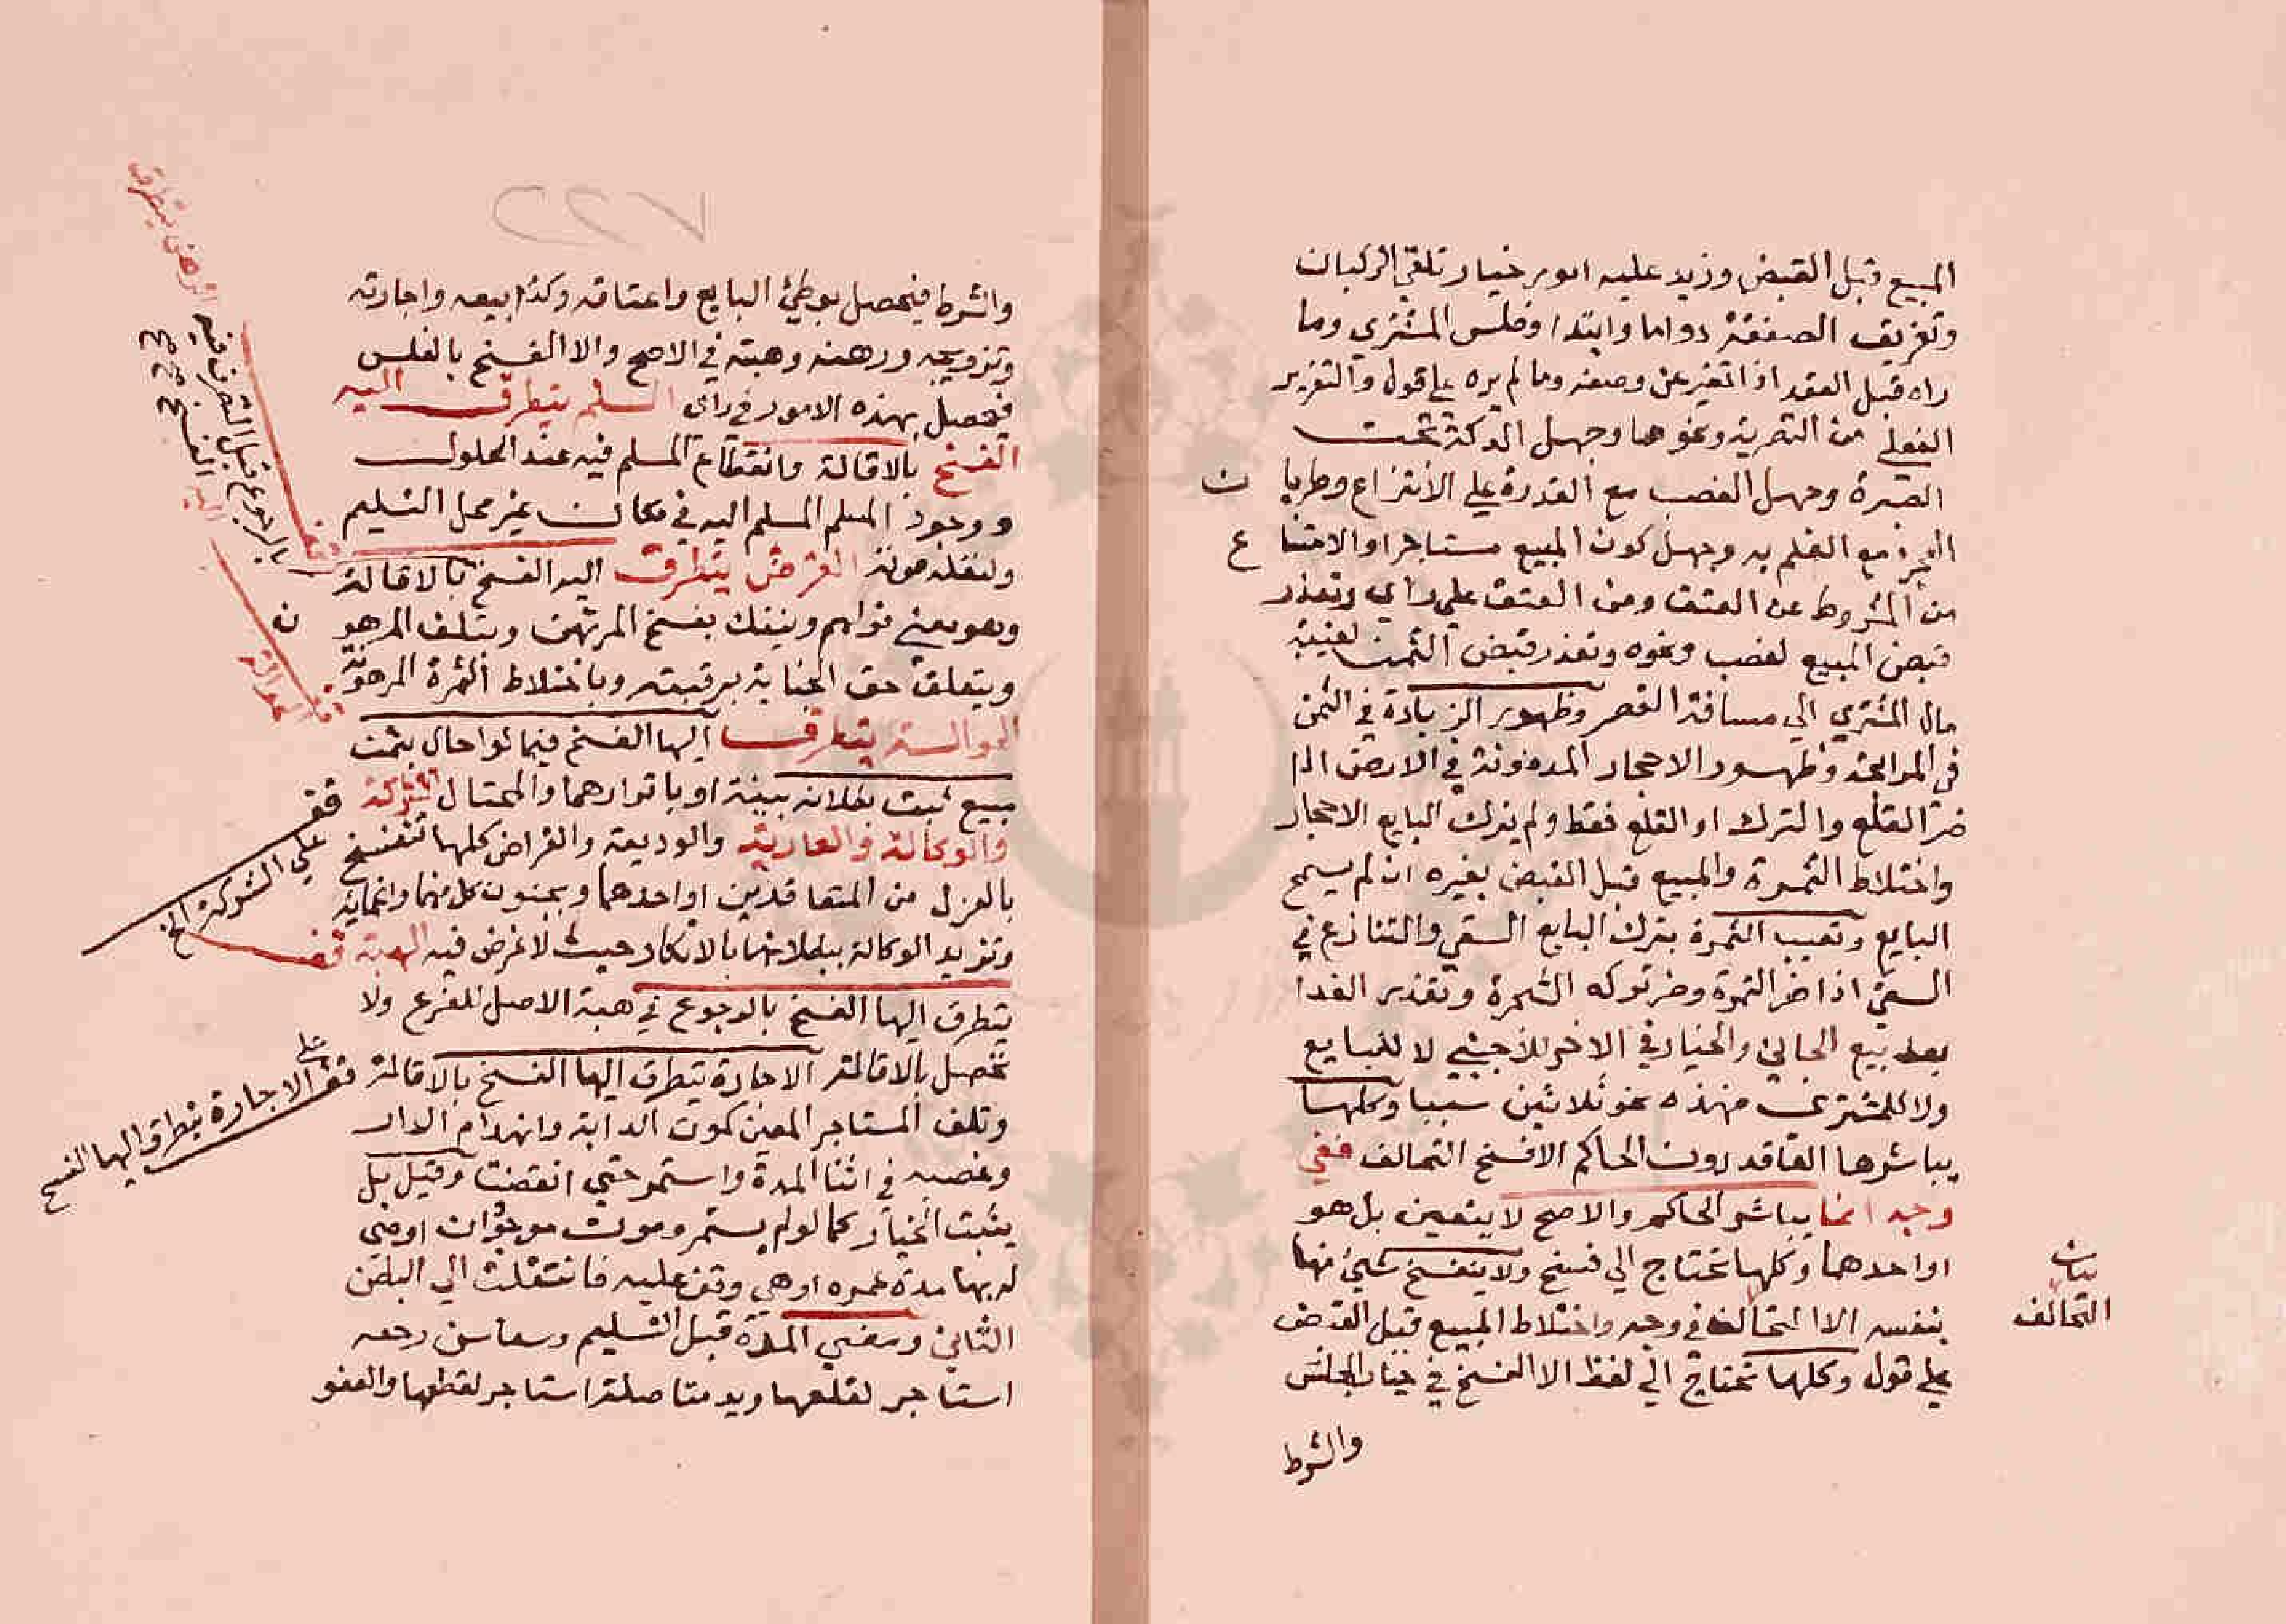 المبيع قبل القبض وزيد عليه امور خيار تلقي الركبان
وتفريق الصفقة دواما وابتدا وفلس المشتري وما
راه قبل العقد اذا تغير عن وصفه وما لم يره على قول والتغرير
الفعلي من التصرية ونحوها وجهل الدكة تحت
الصبرة وجهل الغصب مع القدرة على الانتزاع وطريا ن
العجز مع العلم به وجهل كون المبيع مستاجرا والامتنا ع
من المشروط عن العتق ومن العتق على راي وتعذر
قبض المبيع لغصب ونحوه وتعذر قبض الثمن لغيبة
مال المشتري الي مسافة القصر وظهور الزيادة في الثمن
في المرابحة وظهور الاحجار المدفونة في الارض اذا
ضر القلع والترك او القلع فقط ولم يترك البايع الاحجار
واختلاط الثمرة والمبيع قبل القبض بغيره ان لم يسمح
البايع وتعيب الثمرة بترك البايع السقي والتنازع في
السقي اذا ضر الثمرة وضر تركه الشجرة وتعذر الفدا
بعد بيع الجاني والخيار في الاخر للاجنبي لا للبايع
ولا للمشتري فهذه نحو ثلاثين سببا وكلها
يباشرها العاقد دون الحاكم الا فسخ التحالف ففي
وجه انما يباشر الحاكم والاصح لا يتعين بل هو
او احدهما وكلها تحتاج الي فسخ ولا ينفسخ شيء منها
بنفسه الا التحالف في وجه واختلاط المبيع قبل القبض
على قول وكلها تحتاج الي لفظ الا الفسخ في خيار المجلس
والشرط
بيان
التحالف
٢٢٧
والشرط فيحصل بوطئ البايع واعتاقه وكذا بيعه واجارته
وتزويجه ورهنه وهبته في الاصح والا الفسخ بالفلس
فيحصل بهذه الامور في راي السلم يتطرق اليه
الفسخ بالاقالة وانقطاع المسلم فيه عند الحلول
ووجود المسلم المسلم اليه في مكان غير محل التسليم
ولنقله مونة القرض يتطرق اليه الفسخ بالاقالة
وهو معني قولهم وينفك بفسخ المرتهن وبتلف المرهو ن
ويتعلق حق الجناية برقبته وباختلاط الثمرة المرهونة
الحوالة يتطرق اليها الفسخ فيما لو احال بثمن
مبيع ثبت بطلانه ببينة او باقرارهما والمحتال الشركة
والوكالة والعارية والوديعة والقراض كلها تنفسخ
بالعزل من المتعاقدين او احدهما وبجنون كل منهما واغمايه
وتزيد الوكالة ببطلانها بالانكار حيث لا غرض فيه الهبة قف
يتطرق اليها الفسخ بالرجوع في هبة الاصل للفرع ولا
تحصل بالاقالة الاجارة يتطرق اليها الفسخ بالاقالة
وتلف المستاجر المعين كموت الدابة وانهدام الدار
وغصبه في اثنا المدة واستمر حتي انقضت وقيل بل
يثبت الخيار كما لو لم يستمر وموت موجر ان اوصي
له بها مدة عمره او هي وقف عليه فانتقلت الي البطن
الثاني ومضي المدة قبل التسليم وسماسن رجعه
استاجر لقلعها ويد متاصلة استاجر لقطعها والعفو
القرض يتطرق
اليه الفسخ
بالرجوع قبل التصرف فيه
قف الحوالة
قف
على الشركة الخ
قف على الاجارة يتطرق اليها الفسخ